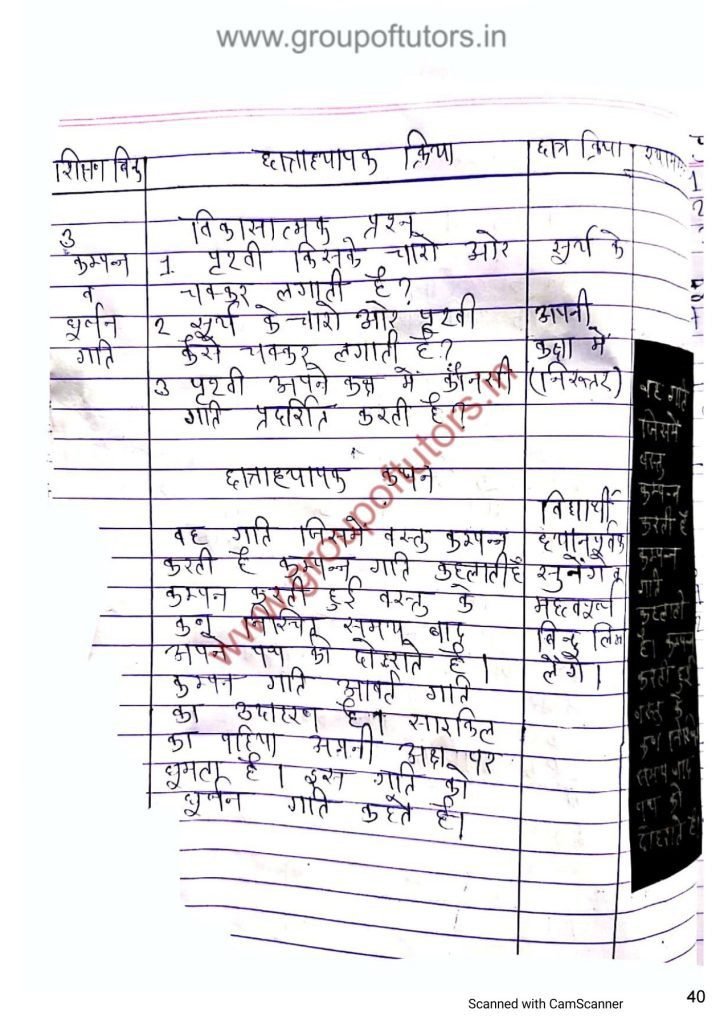 www.groupoftutors.in
शिक्षण बिन्दु
छात्राध्यापक क्रिया
छात्र क्रिया
3
कम्पन्न
व
घूर्णन
गति
विकासात्मक प्रश्न
1. पृथ्वी किसके चारो ओर
चक्कर लगाती है?
2 सूर्य के चारो ओर पृथ्वी
कैसे चक्कर लगाती है?
3 पृथ्वी अपने कक्ष में कौनसी
गति प्रदर्शित करती है?
छात्राध्यापक कथन
वह गति जिसमे वस्तु कम्पन्न
करती है कम्पन्न गति कहलाती है
कम्पन करती हुई वस्तु के
कण निश्चित समय बाद
अपने पथ को दोहराते है।
कम्पन गति आवर्त गति
का उदाहरण है। साइकिल
का पहिया अपनी अक्ष पर
घुमता है। इस गति को
घूर्णन गति कहते है।
सूर्य के
अपनी
कक्षा में
(निरुत्तर)
विद्यार्थी
ध्यानपूर्वक
सुनेंगे व
महत्वपूर्ण
बिन्दु लिख
लेंगे।
वह गति
जिसमे
वस्तु
कम्पन्न
करती है
कम्पन
गति
कहलाती
है। कम्पन
करती हुई
वस्तु के
कण निश्चित
समय बाद
पथ को
दोहराते है।
www.groupoftutors.in
Scanned with CamScanner
40